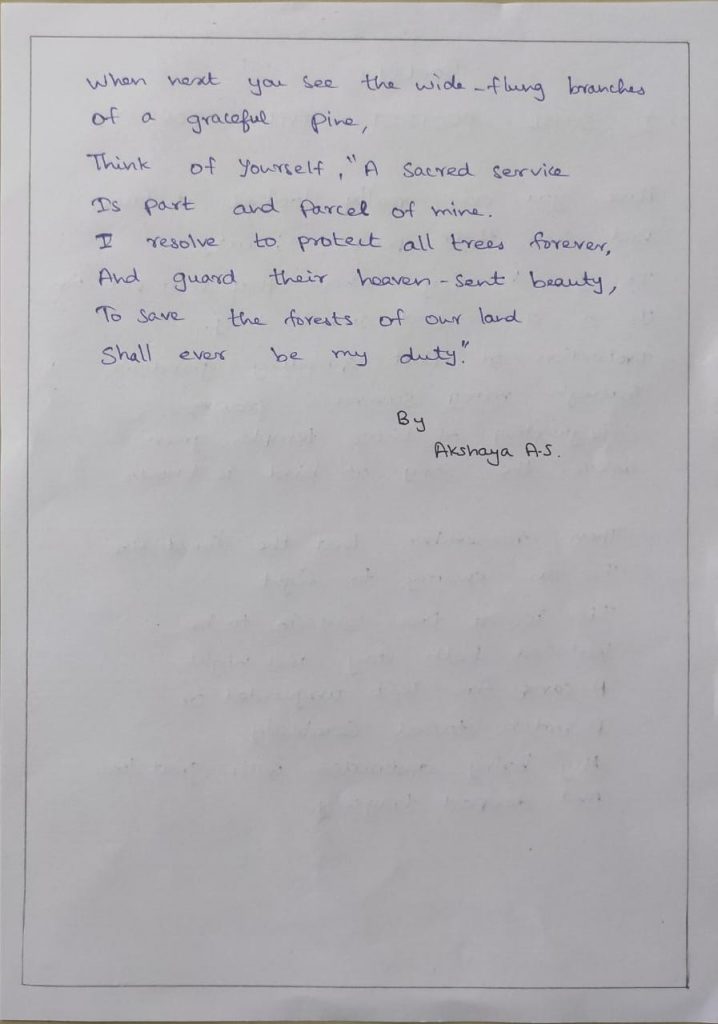 When next you see the wide-flung branches
of a graceful pine,
Think of yourself, "A sacred service
Is part and parcel of mine.
I resolve to protect all trees forever,
And guard their heaven-sent beauty,
To save the forests of our land
Shall ever be my duty."
By
Akshaya A.S.